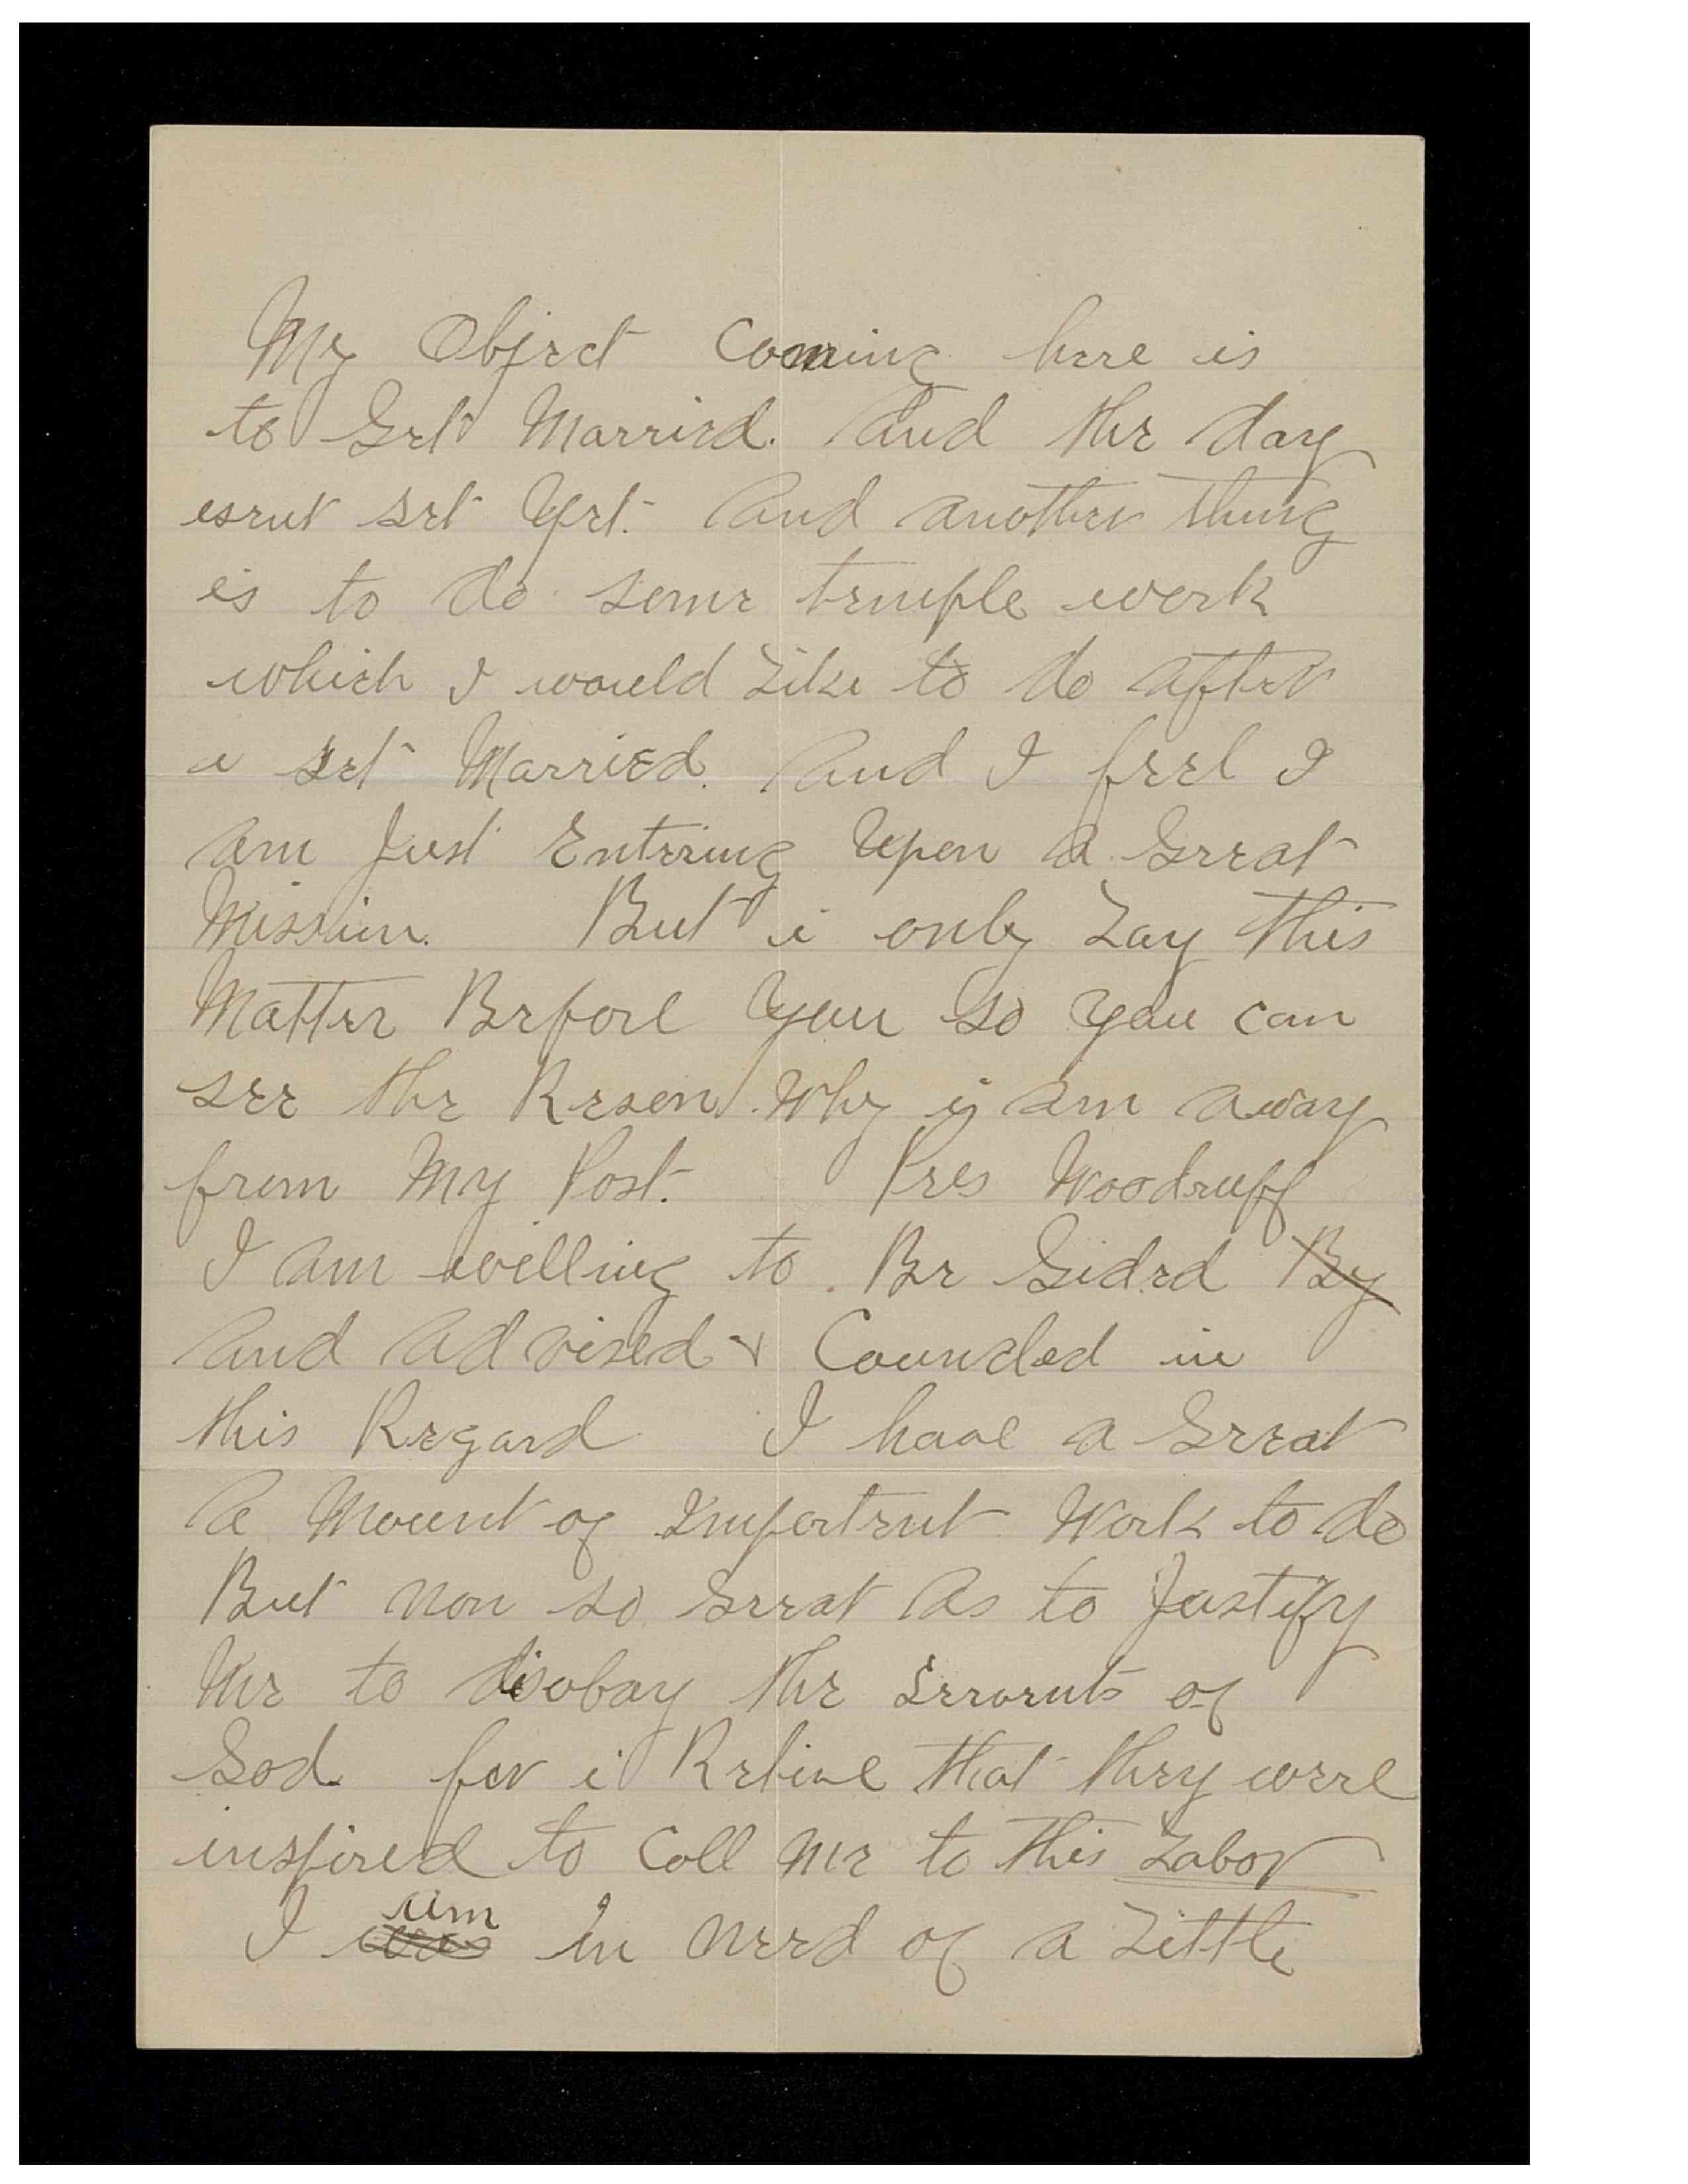 My Object Coming here is
to Get Married. And the day
esent set Yet. And another thing
is to do some temple work
which I would Like to do after
i Get Married. And I feel I
am Just Entering Upon a Great
Mission. But i only Lay this
Matter Before You so you can
see the Reson. Why i am away
from My Post. Pres Woodruff
I am willing to Be Gided By
and Advised & Councled in
this Regard I have a Great
A Mount of Importent Work to do
But non so Great As to Justify
Me to disobay the Servents of
God. for i Relieve that they were
inspired to Call Me to this Labor
I was am In Need of a Little